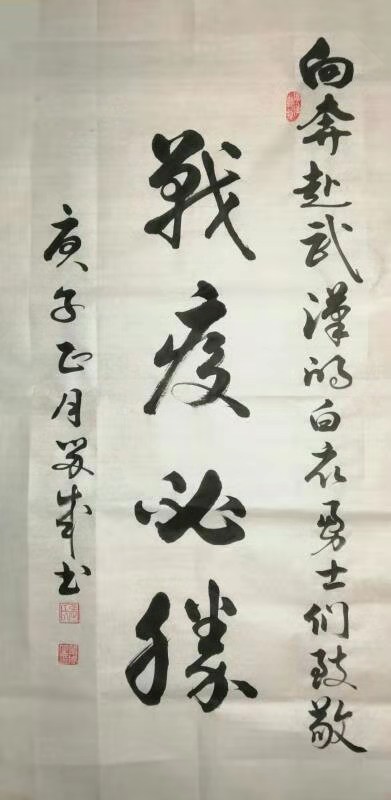 向奔赴武漢的白衣勇士们致敬
戰疫必勝
庚子正月成书